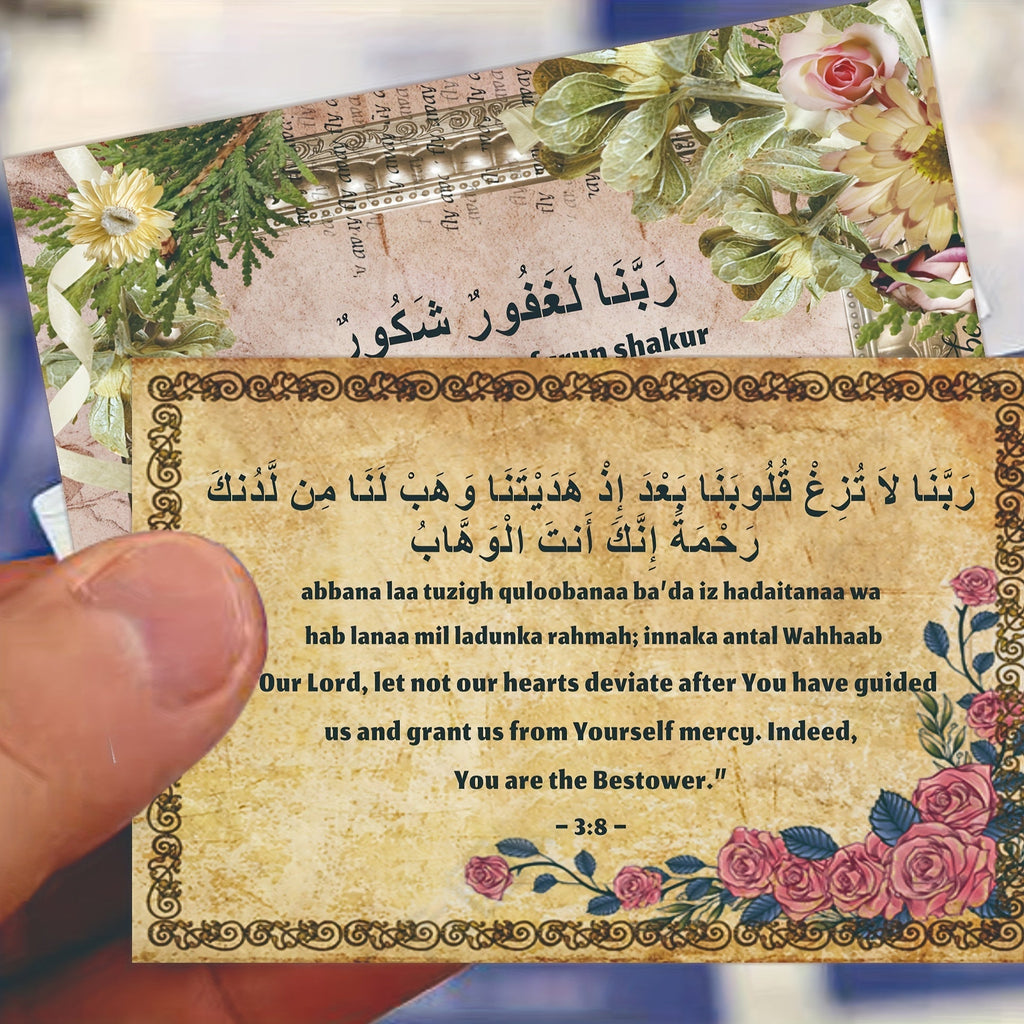 رَبَّنَا لَغَفُورٌ شَكُورٌ
shakur
رَبَّنَا لاَ تُزِغْ قُلُوبَنَا بَعْدَ إِذْ هَدَيْتَنَا وَهَبْ لَنَا مِن لَّدُنكَ
رَحْمَةً إِنَّكَ أَنتَ الْوَهَّابُ
abbana laa tuzigh quloobanaa ba'da iz hadaitanaa wa
hab lanaa mil ladunka rahmah; innaka antal Wahhaab
Our Lord, let not our hearts deviate after You have guided
us and grant us from Yourself mercy. Indeed,
You are the Bestower."
– 3:8 –